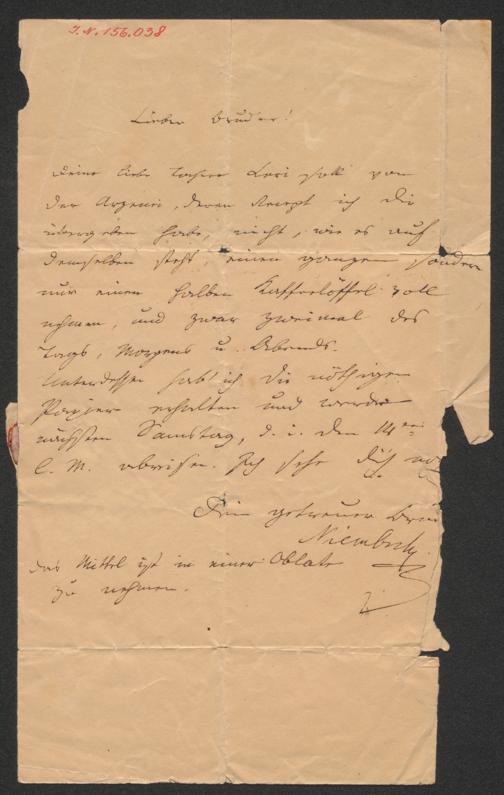 I.N. 156.038
Lieber Bruder!
Deine liebe Tochter soll von
der Arzenei, deren Recept ich dir
übergeben habe, nicht, wie es auf
demselben steht, einen ganzen, sondern
nur einen halben Kaffeelöffel voll
nehmen, und zwar zweimal des
Tags, Morgens u. Abends.
Unterdessen hab' ich die nöthigen
Papier erhalten und werde
nächsten Samstag, d. i. den 14ten
C. M. abreisen. Ich sehe dich
Dein getreuer
Niembsch
das Mittel ist in einer Oblate
zu nehmen.